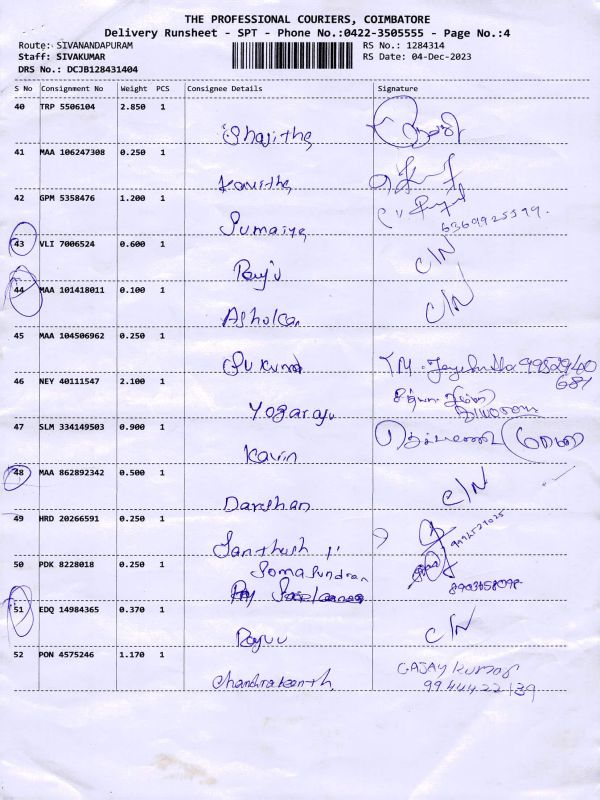 THE PROFESSIONAL COURIERS, COIMBATORE
Delivery Runsheet - SPT - Phone No.:0422-3505555 - Page No.:4
Route: SIVANANDAPURAM RS No.: 1284314
Staff: SIVAKUMAR RS Date: 04-Dec-2023
DRS No.: DCJB128431404
S No Consignment No Weight PCS Consignee Details Signature
40 TRP 5506104 2.850 1
Shajitha
41 MAA 106247308 0.250 1
Kavitha
42 GPM 5358476 1.200 1
Sumaiya 6369925599.
43 VLI 7006524 0.600 1
Raju C/N
44 MAA 101418011 0.100 1
Ashokan C/N
45 MAA 104506962 0.250 1
Sukund
46 NEY 40111547 2.100 1
Yogaraju
47 SLM 334149503 0.900 1
Kavin
48 MAA 862892342 0.500 1
Darshan C/N
49 HRD 20266591 0.250 1
Santhosh
50 PDK 8228018 0.250 1
Somasundran
51 EDQ 14984365 0.370 1
Rajuu C/N
52 PON 4575246 1.170 1
Chandrakanth GAJAY Kumar
9944422139